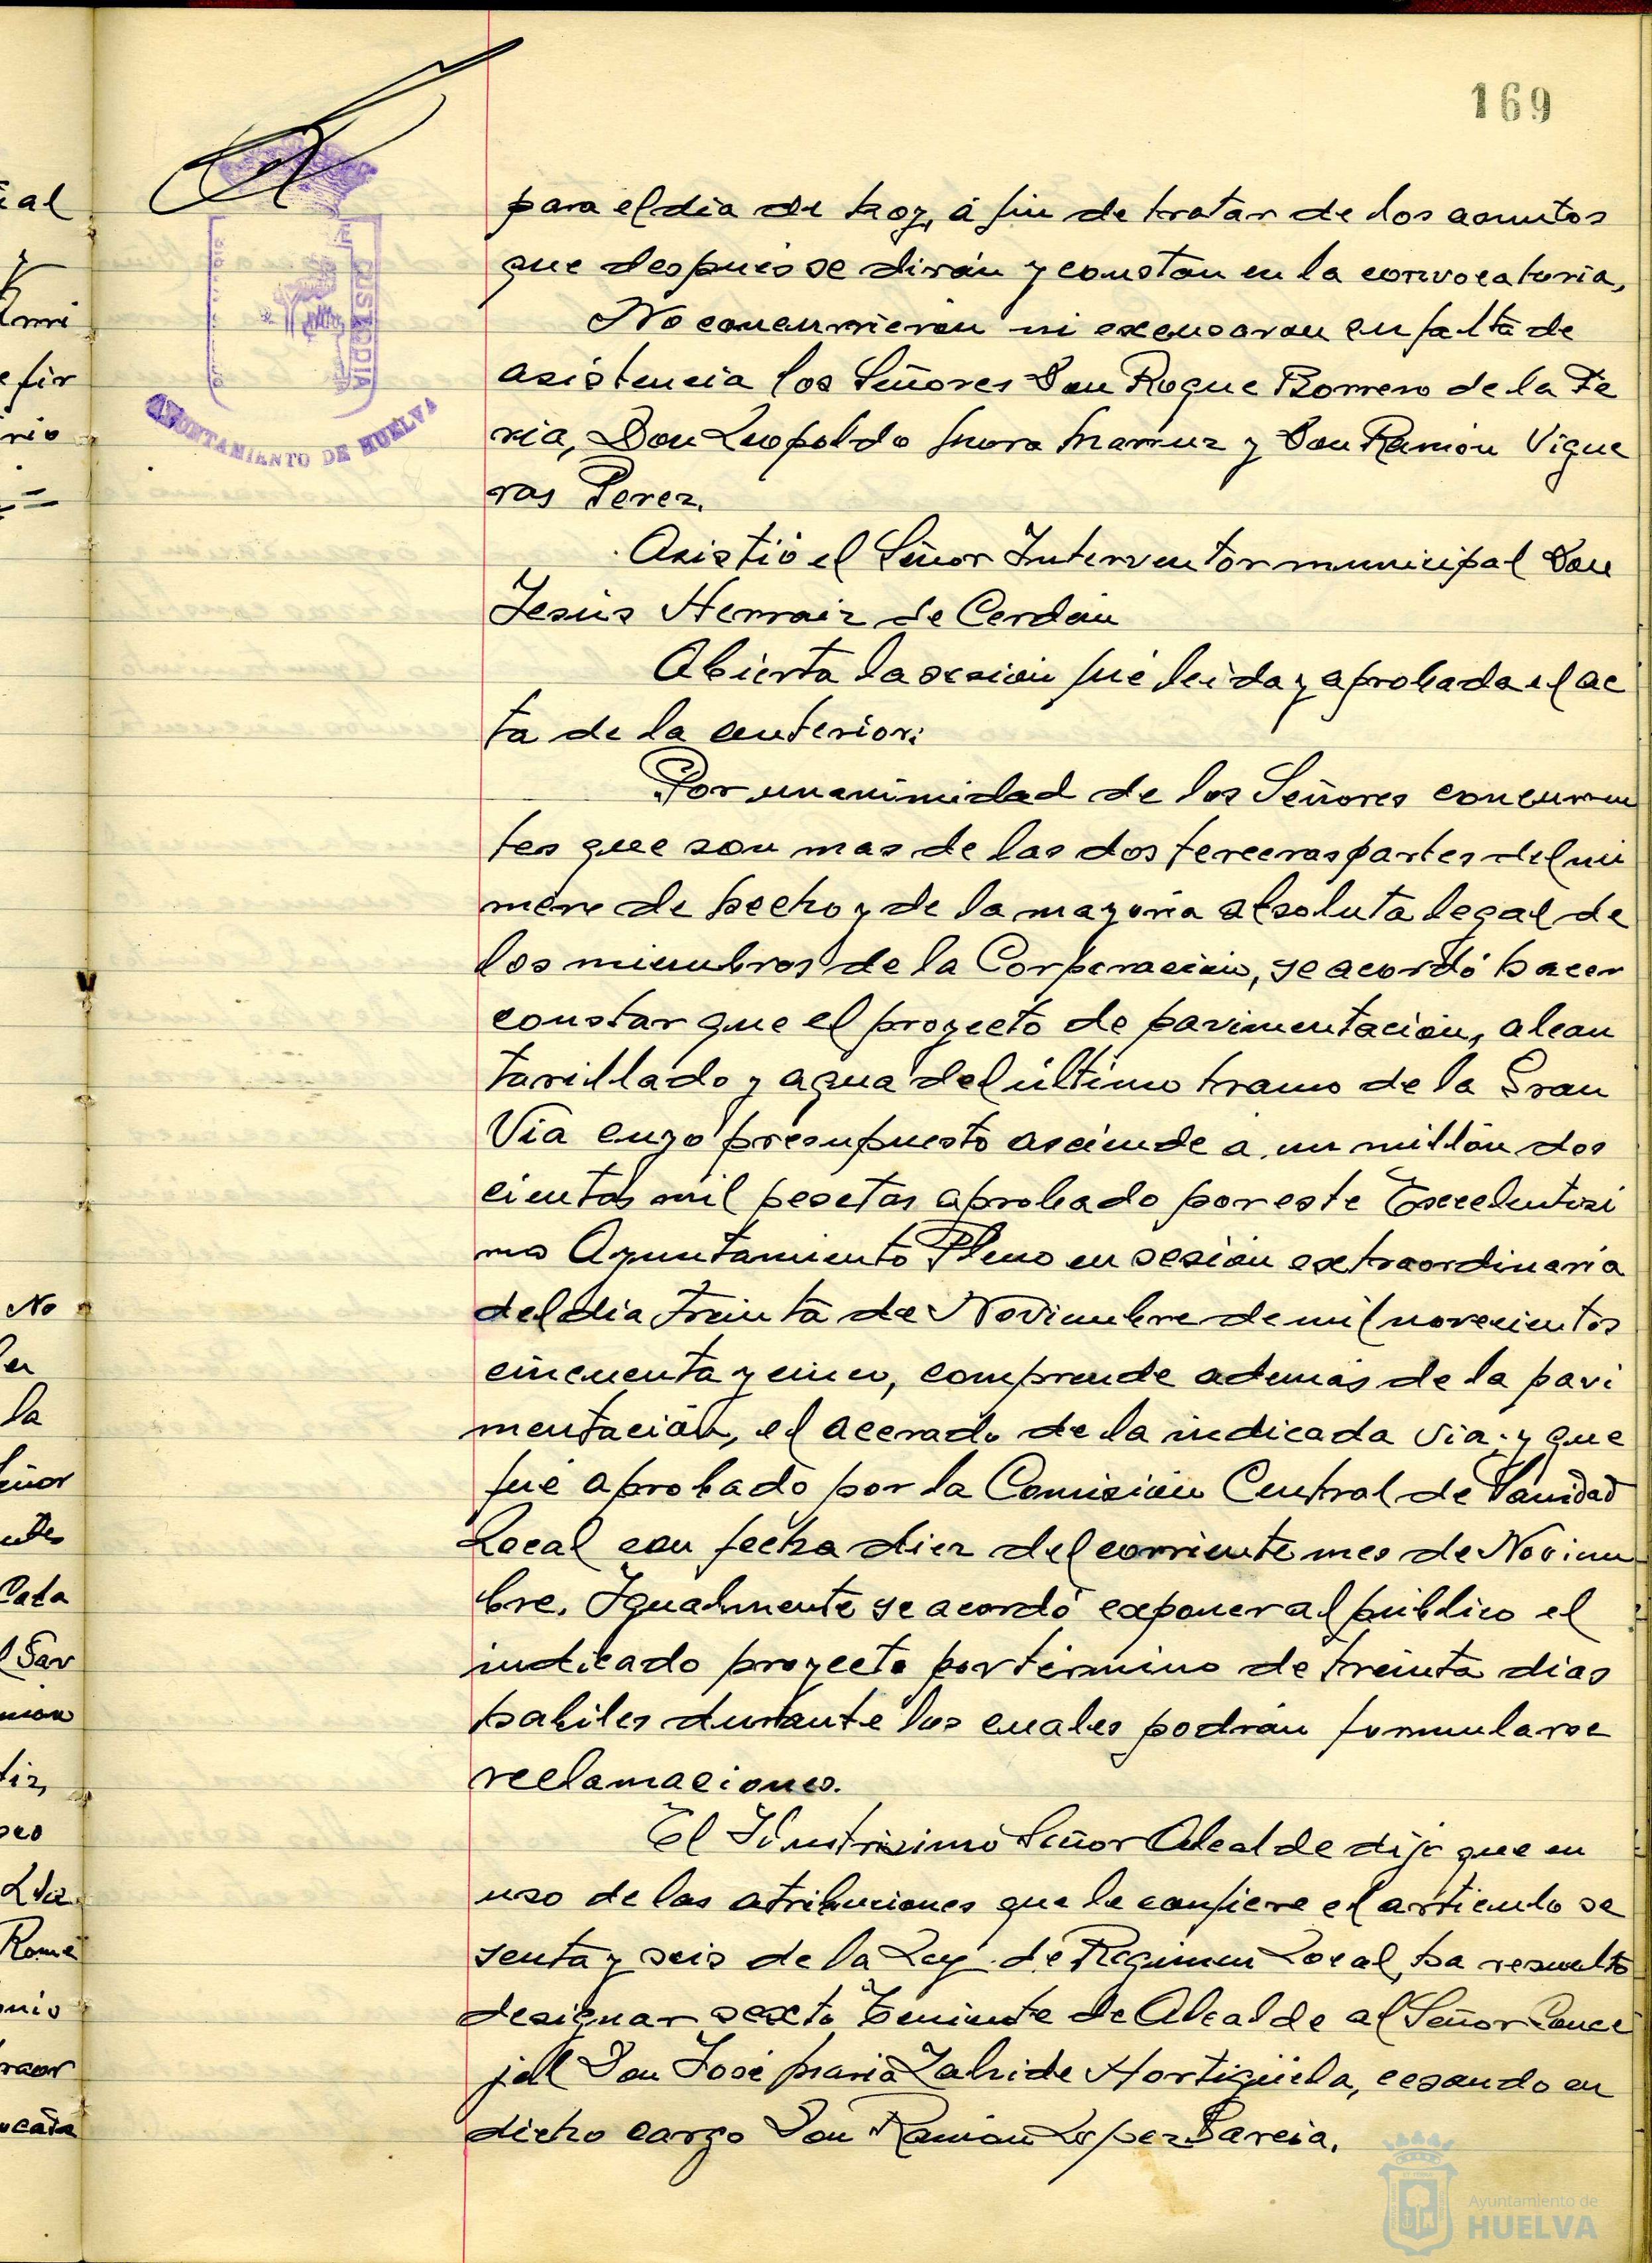 169
para el dia de hoy, á fin de tratar de los asuntos
que después se dirán y constan en la convocatoria,
No concurrieron ni excusaron su falta de
asistencia los Señores Don Roque Borrero de la Fe
ria, Don Leopoldo Mora Marruz y Don Ramón Vigue
ras Perez.
Asistió el Señor Interventor municipal Don
Jesús Herraiz de Cerdán
Abierta la sesión fué leida y aprobada el ac
ta de la anterior:
Por unanimidad de los Señores concurren
tes que son mas de las dos terceras partes del nú
mero de hecho y de la mayoria absoluta legal de
los miembros de la Corporación, se acordó hacer
constar que el proyecto de pavimentación, alcan
tarillado y agua del último tramo de la Gran
Via cuyo presupuesto asciende a un millón dos
cientas mil pesetas aprobado por este Excelentisi
mo Ayuntamiento Pleno en sesión extraordinaria
del dia treinta de Noviembre de mil novecientos
cincuenta y cinco, comprende además de la pavi
mentación, el acerado de la indicada via y que
fué aprobado por la Comisión Central de Sanidad
Local con fecha diez del corriente mes de Noviem
bre. Igualmente se acordó exponer al público el
indicado proyecto por término de treinta dias
habiles durante los cuales podrán formularse
reclamaciones.
El Ilustrisimo Señor Alcalde dijo que en
uso de las atribuciones que le confiere el articulo se
senta y seis de la Ley de Régimen Local, ha resuelto
designar sexto Teniente de Alcalde al Señor Conce
jal Don José Maria Zahide Hortigüela, cesando en
dicho cargo Don Ramón Lopez Garcia.
AYUNTAMIENTO DE HUELVA
Ayuntamiento de
HUELVA